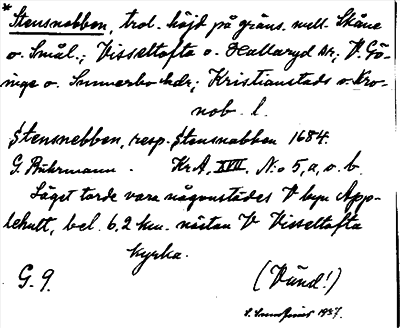 * Stensnabben, trol. höjd på gräns. mell. Skåne
o. Smål.; Visseltofta o. Hallaryd sr; V. Gö-
inge o. Sunnerbo hdr; Kristianstads o. Kro-
nob. l.
Stensnebben, resp. Stensnabben 1684.
G. Buhrmann. Kr.A. XVIII. N:o 5, a, o. b.
Läget torde vara någonstädes V byn App-
lehult, bel. 6,2 km. nästan V Visseltofta
kyrka.
G. 9. (Vänd!)
1937.